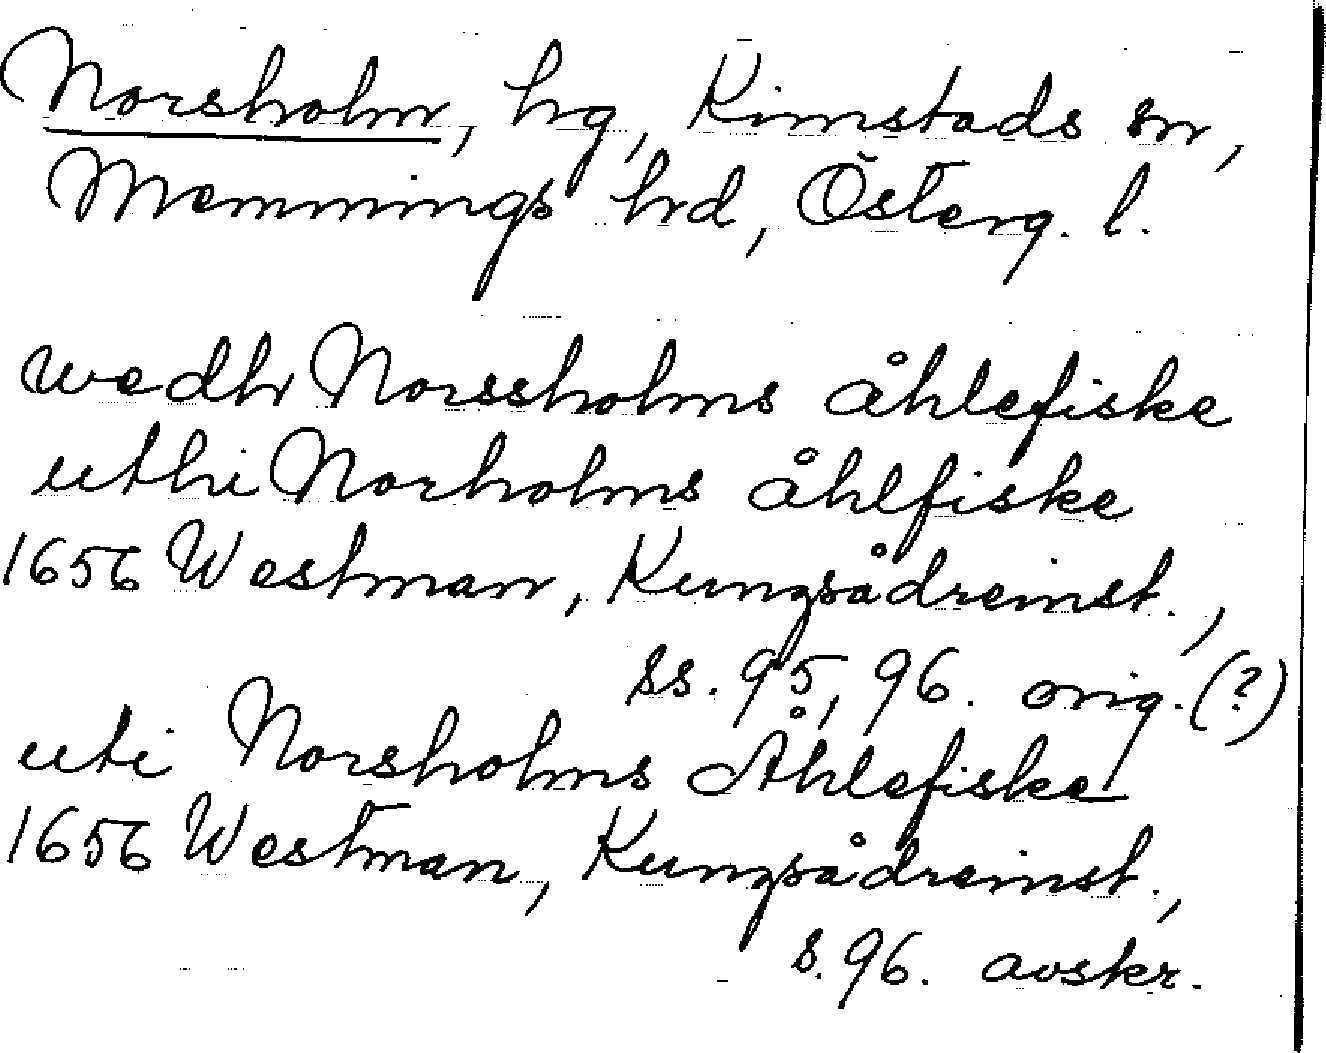 Norsholm, hg, Kimstads sn,
Memmings hrd, Österg. l.
wedh Norssholms åhlefiske
uthi Norholms åhlfiske
1656 Westman, Kungsådreinst.,
ss. 95, 96. orig. (?)
uti Norsholms Åhlefiske
1656 Westman, Kungsådreinst.,
s. 96. avskr.